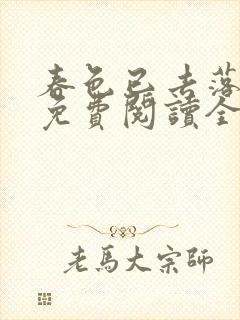 春色已去落
免費閱讀全
老馬大宗師